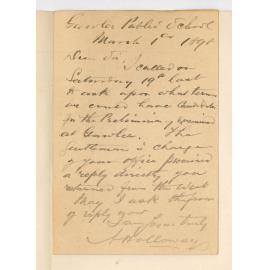 Gawler Public School
March 1st 1898
Dear Sir, I called on
Saturday 19th last
to ask upon what terms
we could have Candidates
for the Preliminary examined
at Gawler. The
Gentleman in charge
of your office promised
a reply directly you
returned from the West
May I ask the favor
of reply now
I am yours truly
A Holloway